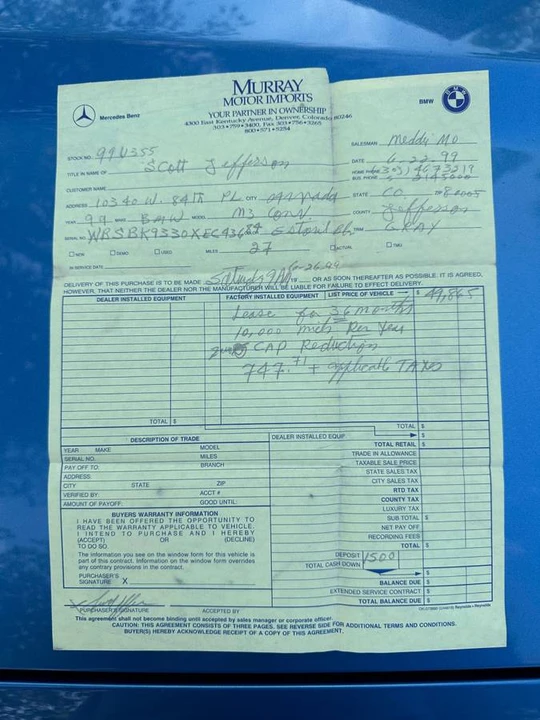 MURRAY
MOTOR IMPORTS
YOUR PARTNER IN OWNERSHIP
4300 East Kentucky Avenue, Denver, Colorado 80246
303•759•3400, Fax 303•756•3265
800•571•5254
Mercedes Benz
BMW
STOCK NO. 99U355
SALESMAN Meddy Mo
TITLE IN NAME OF Scott Jefferson
DATE 6-22-99
HOME PHONE (303) 4673219
CUSTOMER NAME
BUS PHONE 2145000
ADDRESS 10340 W. 84TH PL CITY Arvada STATE CO ZIP 80005
YEAR 99 MAKE BMW MODEL M3 Conv. COUNTY Jefferson
SERIAL NO. WBSBK9330XEC43684 Estoril TRIM GRAY
NEW DEMO USED MILES 27 ACTUAL TMU
IN SERVICE DATE
DELIVERY OF THIS PURCHASE IS TO BE MADE Saturday 6-26-99 OR AS SOON THEREAFTER AS POSSIBLE. IT IS AGREED,
HOWEVER, THAT NEITHER THE DEALER NOR THE MANUFACTURER WILL BE LIABLE FOR FAILURE TO EFFECT DELIVERY.
DEALER INSTALLED EQUIPMENT FACTORY INSTALLED EQUIPMENT LIST PRICE OF VEHICLE $ 49,865
Lease for 36 months
10,000 miles Per Year
CAP Reduction
747.71 + applicable TAXES
TOTAL $
TOTAL $
DESCRIPTION OF TRADE
DEALER INSTALLED EQUIP. $
YEAR MAKE MODEL
TOTAL RETAIL $
SERIAL NO. MILES
TRADE IN ALLOWANCE
PAY OFF TO: BRANCH
TAXABLE SALE PRICE
ADDRESS:
STATE SALES TAX
CITY STATE ZIP
CITY SALES TAX
VERIFIED BY: ACCT #
RTD TAX
AMOUNT OF PAYOFF: GOOD UNTIL:
COUNTY TAX
LUXURY TAX
BUYERS WARRANTY INFORMATION
I HAVE BEEN OFFERED THE OPPORTUNITY TO
READ THE WARRANTY APPLICABLE TO VEHICLE.
I INTEND TO PURCHASE AND I HEREBY
(ACCEPT) OR (DECLINE)
TO DO SO.
The information you see on the window form for this vehicle is
part of this contract. Information on window form overrides
any contrary provisions in the contract.
PURCHASER'S
SIGNATURE X
SUB TOTAL $
NET PAY OFF
RECORDING FEES
TOTAL $
DEPOSIT 1500
TOTAL CASH DOWN
BALANCE DUE $
EXTENDED SERVICE CONTRACT $
TOTAL BALANCE DUE $
PURCHASER'S SIGNATURE ACCEPTED BY
This agreement shall not become binding until accepted by sales manager or corporate officer.
CAUTION: THIS AGREEMENT CONSISTS OF THREE PAGES. SEE REVERSE SIDE FOR ADDITIONAL TERMS AND CONDITIONS.
BUYER(S) HEREBY ACKNOWLEDGE RECEIPT OF A COPY OF THIS AGREEMENT.